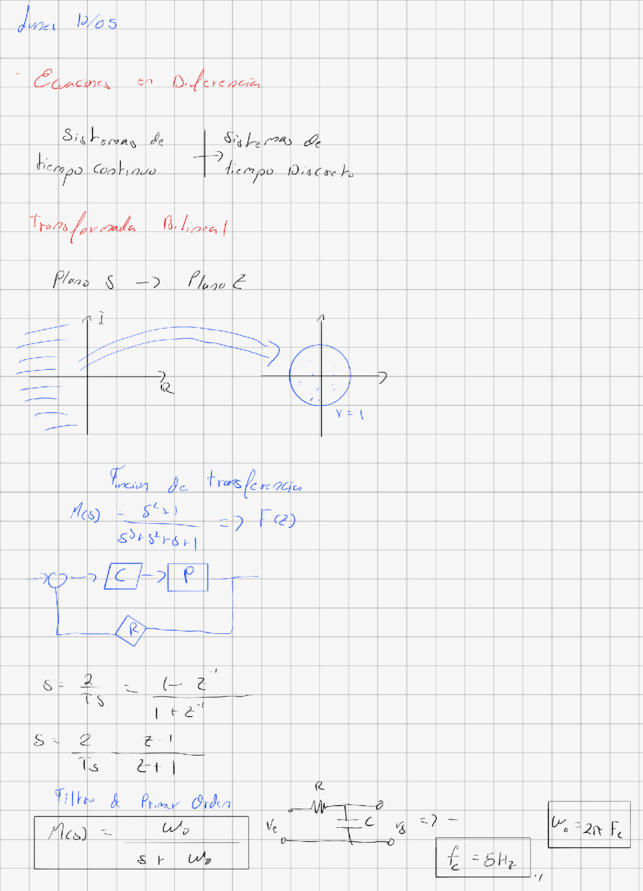 Lunes 12/05
- Ecuaciones en Diferencia
Sistemas de tiempo continuo → Sistemas de tiempo Discreto
Transformada Bilineal
Plano S -> Plano Z
I
R
r = 1
Funcion de transferencia
M(s) = (s²+1)/(s³+s²+s+1) => F(z)
C -> P
R
S = 2/Ts = (1 - z⁻¹)/(1 + z⁻¹)
S = 2/Ts (z-1)/(z+1)
Filtro de Primer Orden
M(s) = ω₀/(s + ω₀)
R
C
Ve
Vs
=> -
fc = 5Hz
ω₀ = 2π Fc